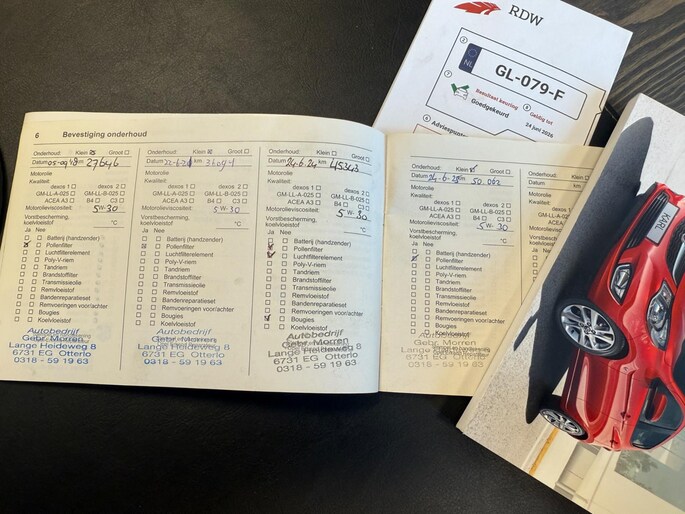 RDW
NL
GL-079-F
Resultaat keuring
Goedgekeurd
Geldig tot
24 juni 2026
Adviespunten
KARL
6 Bevestiging onderhoud
Onderhoud: Klein Groot
Datum km 27646
Motorolie
Kwaliteit:
dexos 1 dexos 2
GM-LL-A-025 GM-LL-B-025
ACEA A3 B4 C3
Motorolieviscositeit: 5W-30
Vorstbescherming,
koelvloeistof °C
Ja Nee
Batterij (handzender)
Pollenfilter
Luchtfilterelement
Poly-V-riem
Tandriem
Brandstoffilter
Transmissieolie
Remvloeistof
Bandenreparatieset
Remvoeringen voor/achter
Bougies
Koelvloeistof
Autobedrijf
Gebr. Morren
Lange Heideweg 8
6731 EG Otterlo
0318 - 59 19 63
Onderhoud: Klein Groot
Datum km
Motorolie
Kwaliteit:
dexos 1 dexos 2
GM-LL-A-025 GM-LL-B-025
ACEA A3 B4 C3
Motorolieviscositeit: 5W-30
Vorstbescherming,
koelvloeistof °C
Ja Nee
Batterij (handzender)
Pollenfilter
Luchtfilterelement
Poly-V-riem
Tandriem
Brandstoffilter
Transmissieolie
Remvloeistof
Bandenreparatieset
Remvoeringen voor/achter
Bougies
Koelvloeistof
Autobedrijf
Gebr. Morren
Lange Heideweg 8
6731 EG Otterlo
0318 - 59 19 63
Onderhoud: Klein Groot
Datum 24-6-24 km 45343
Motorolie
Kwaliteit:
dexos 1 dexos 2
GM-LL-A-025 GM-LL-B-025
ACEA A3 B4 C3
Motorolieviscositeit: 5W-30
Vorstbescherming,
koelvloeistof °C
Ja Nee
Batterij (handzender)
Pollenfilter
Luchtfilterelement
Poly-V-riem
Tandriem
Brandstoffilter
Transmissieolie
Remvloeistof
Bandenreparatieset
Remvoeringen voor/achter
Bougies
Koelvloeistof
Autobedrijf
Gebr. Morren
Lange Heideweg 8
6731 EG Otterlo
0318 - 59 19 63
Onderhoud: Klein Groot
Datum km 50.062
Motorolie
Kwaliteit:
dexos 1 dexos 2
GM-LL-A-025 GM-LL-B-025
ACEA A3 B4 C3
Motorolieviscositeit: 5W-30
Vorstbescherming,
koelvloeistof °C
Ja Nee
Batterij (handzender)
Pollenfilter
Luchtfilterelement
Poly-V-riem
Tandriem
Brandstoffilter
Transmissieolie
Remvloeistof
Bandenreparatieset
Remvoeringen voor/achter
Bougies
Koelvloeistof
Autobedrijf
Gebr. Morren
Lange Heideweg 8
6731 EG Otterlo
0318 - 59 19 63
Onderhoud: Klein Groot
Datum km
Motorolie
Kwaliteit:
dexos 1
GM-LL-A-025
ACEA A3
Motorolieviscositeit:
Vorstbescherming,
koelvloeistof
Ja Nee